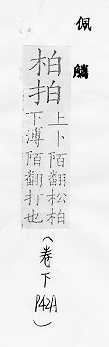 佩觿
柏拍
上卜陌翻松柏
下溥陌翻打也
(卷下 P42A)